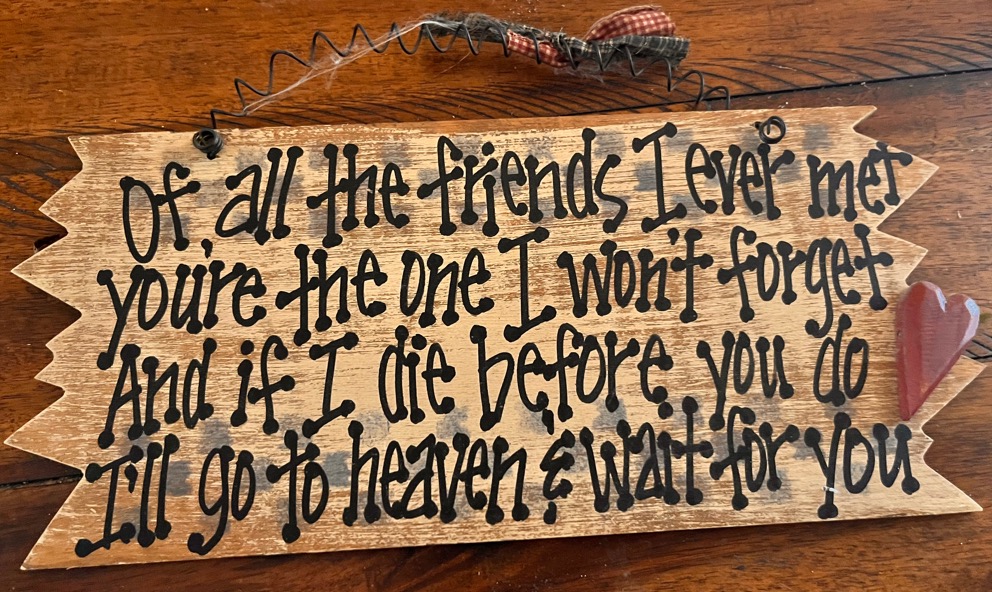 Of all the friends I ever met
you're the one I won't forget
And if I die before you do
I'll go to heaven & wait for you